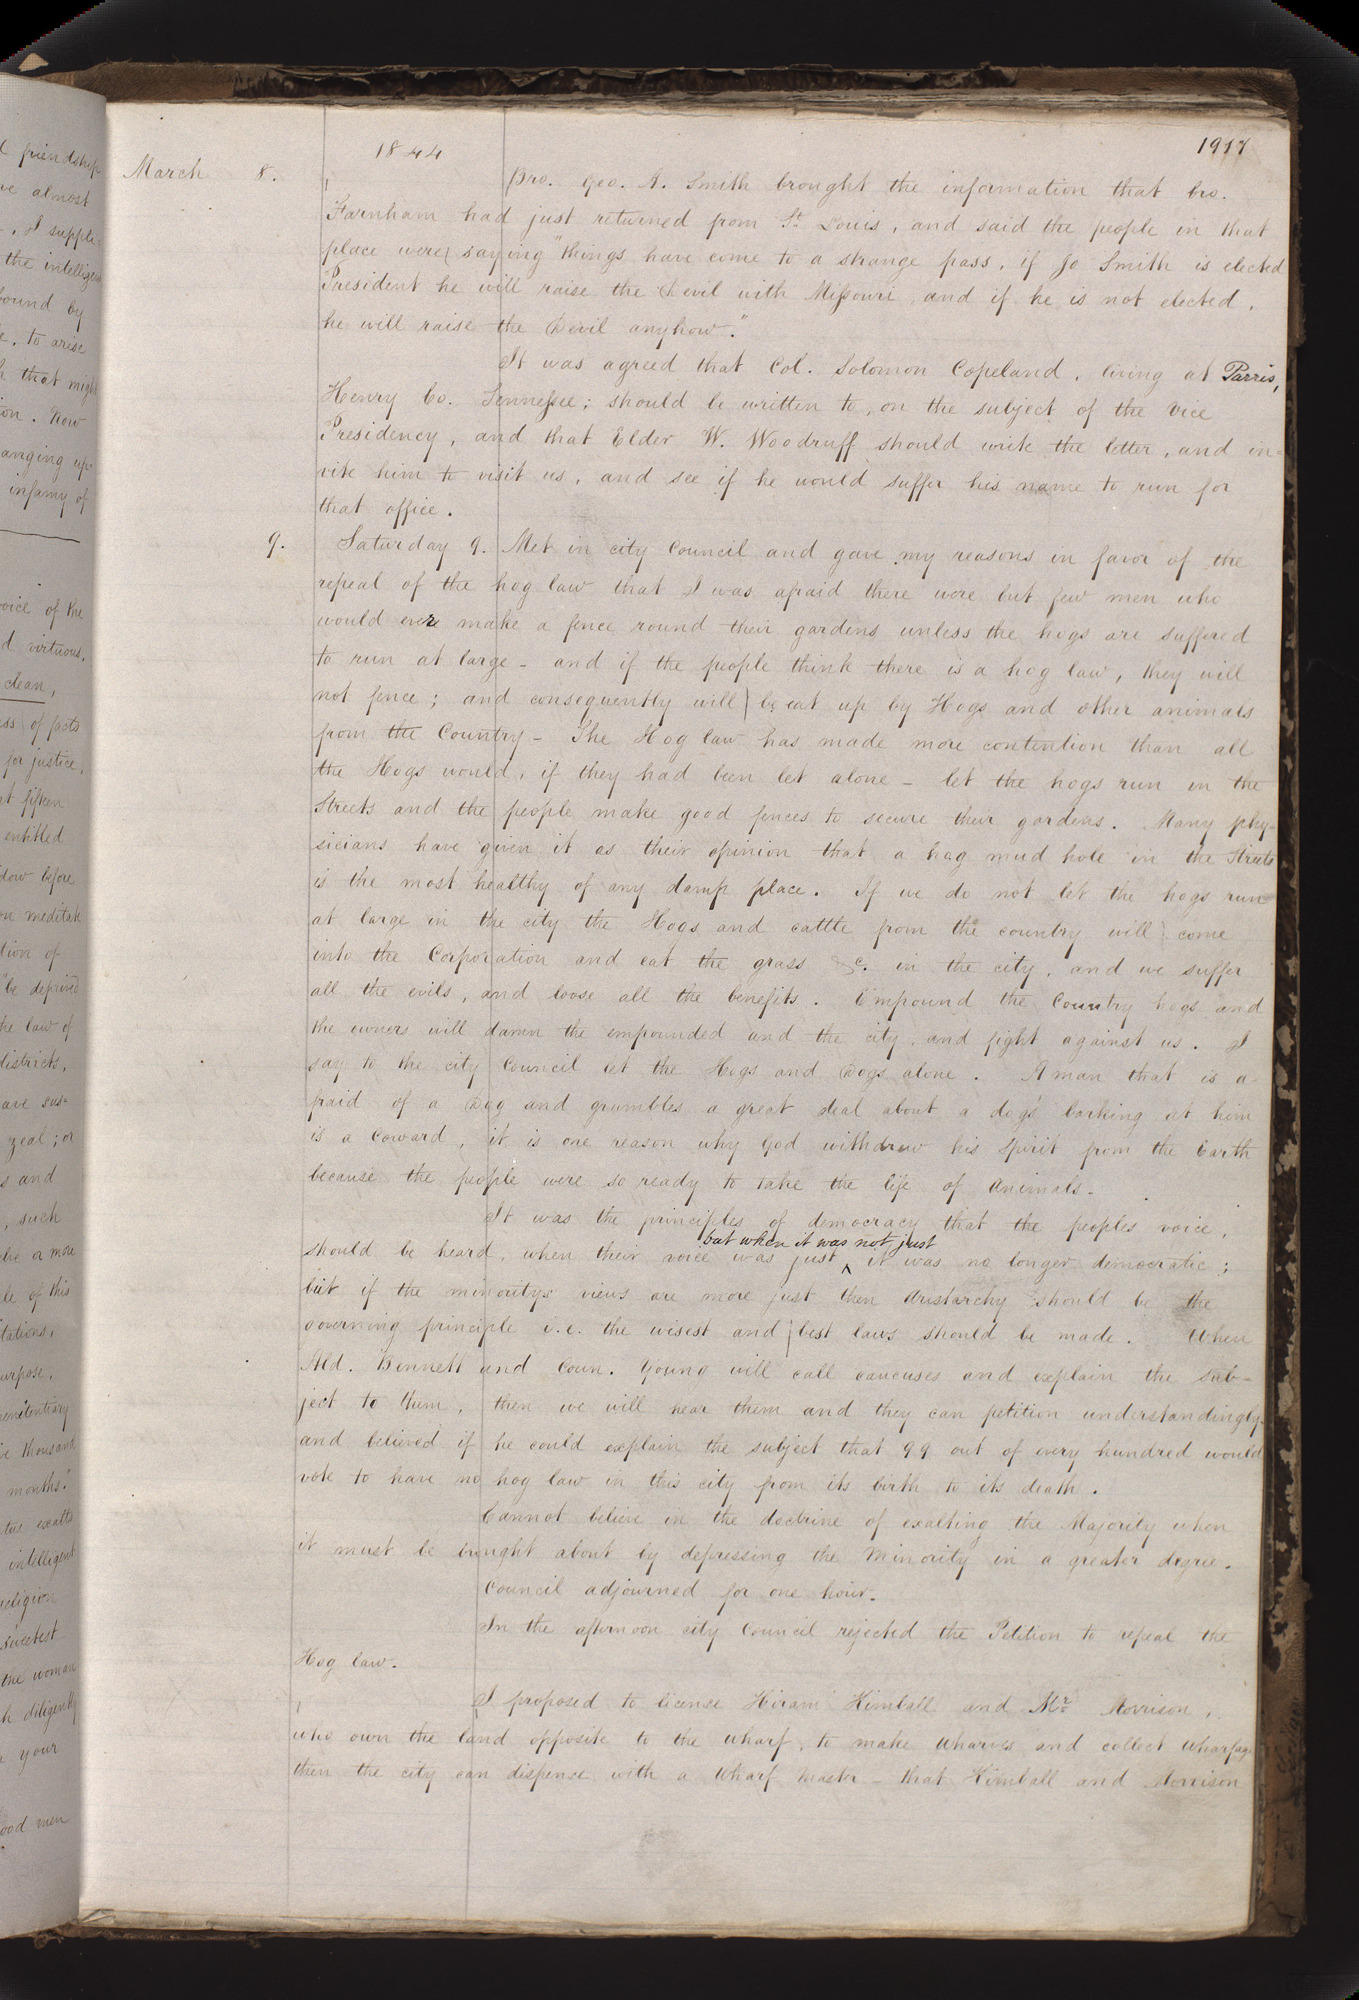 1844
1917
March 8.
Bro. Geo. A. Smith brought the information that bro.
Farnham had just returned from St. Louis, and said the people in that
place were saying "things have come to a strange pass, if Jo Smith is elected
President he will raise the Devil with Missouri, and if he is not elected,
he will raise the Devil anyhow."
It was agreed that Col. Solomon Copeland, living at Parris,
Henry Co. Tennessee; should be written to, on the subject of the Vice
Presidency, and that Elder W. Woodruff should write the letter, and in=
vite him to visit us, and see if he would suffer his name to run for
that office.
9. Saturday 9. Met in city Council and gave my reasons in favor of the
repeal of the hog law that I was afraid there were but few men who
would ever make a fence round their gardens unless the hogs are suffered
to run at large - and if the people think there is a hog law, they will
not fence; and consequently will be eat up by Hogs and other animals
from the Country - The Hog law has made more contention than all
the Hogs would, if they had been let alone - let the hogs run in the
Streets and the people make good fences to secure their gardens. Many phy-
sicians have given it as their opinion that a hog mud hole in the Streets
is the most healthy of any damp place. If we do not let the hogs run
at large in the city the Hogs and cattle from the country will come
into the Corporation and eat the grass &c. in the city, and we suffer
all the evils, and loose all the benefits. Empound the Country hogs and
the owners will damn the empounded and the city, and fight against us. I
say to the city Council let the Hogs and Dogs alone. A man that is a-
fraid of a Dog and grumbles a great deal about a dogs' barking at him
is a Coward, it is one reason why God withdrew his Spirit from the Earth
because the people were so ready to take the life of animals.
It was the principles of democracy that the peoples voice,
should be heard, when their voice was just ^ but when it was not just it was no longer democratic;
but if the minoritys views are more just then Aristarchy should be the
governing principle i.e. the wisest and best laws should be made. When
Ald. Bennett and Coun. Young will call caucuses and explain the sub-
ject to them, then we will hear them and they can petition understandingly.
and believed if he could explain the subject that 99 out of every hundred would
vote to have no hog law in this city from its birth to its death.
Cannot believe in the doctrine of exalting the Majority when
it must be brought about by depressing the Minority in a greater degree.
Council adjourned for one hour.
In the afternoon city Council rejected the Petition to repeal the
Hog law.
I proposed to license Hiram Kimball and Mr. Morrison,
who own the land opposite to the wharf, to make wharves and collect wharfage
then the city can dispense with a Wharf Master - that Kimball and Morrison